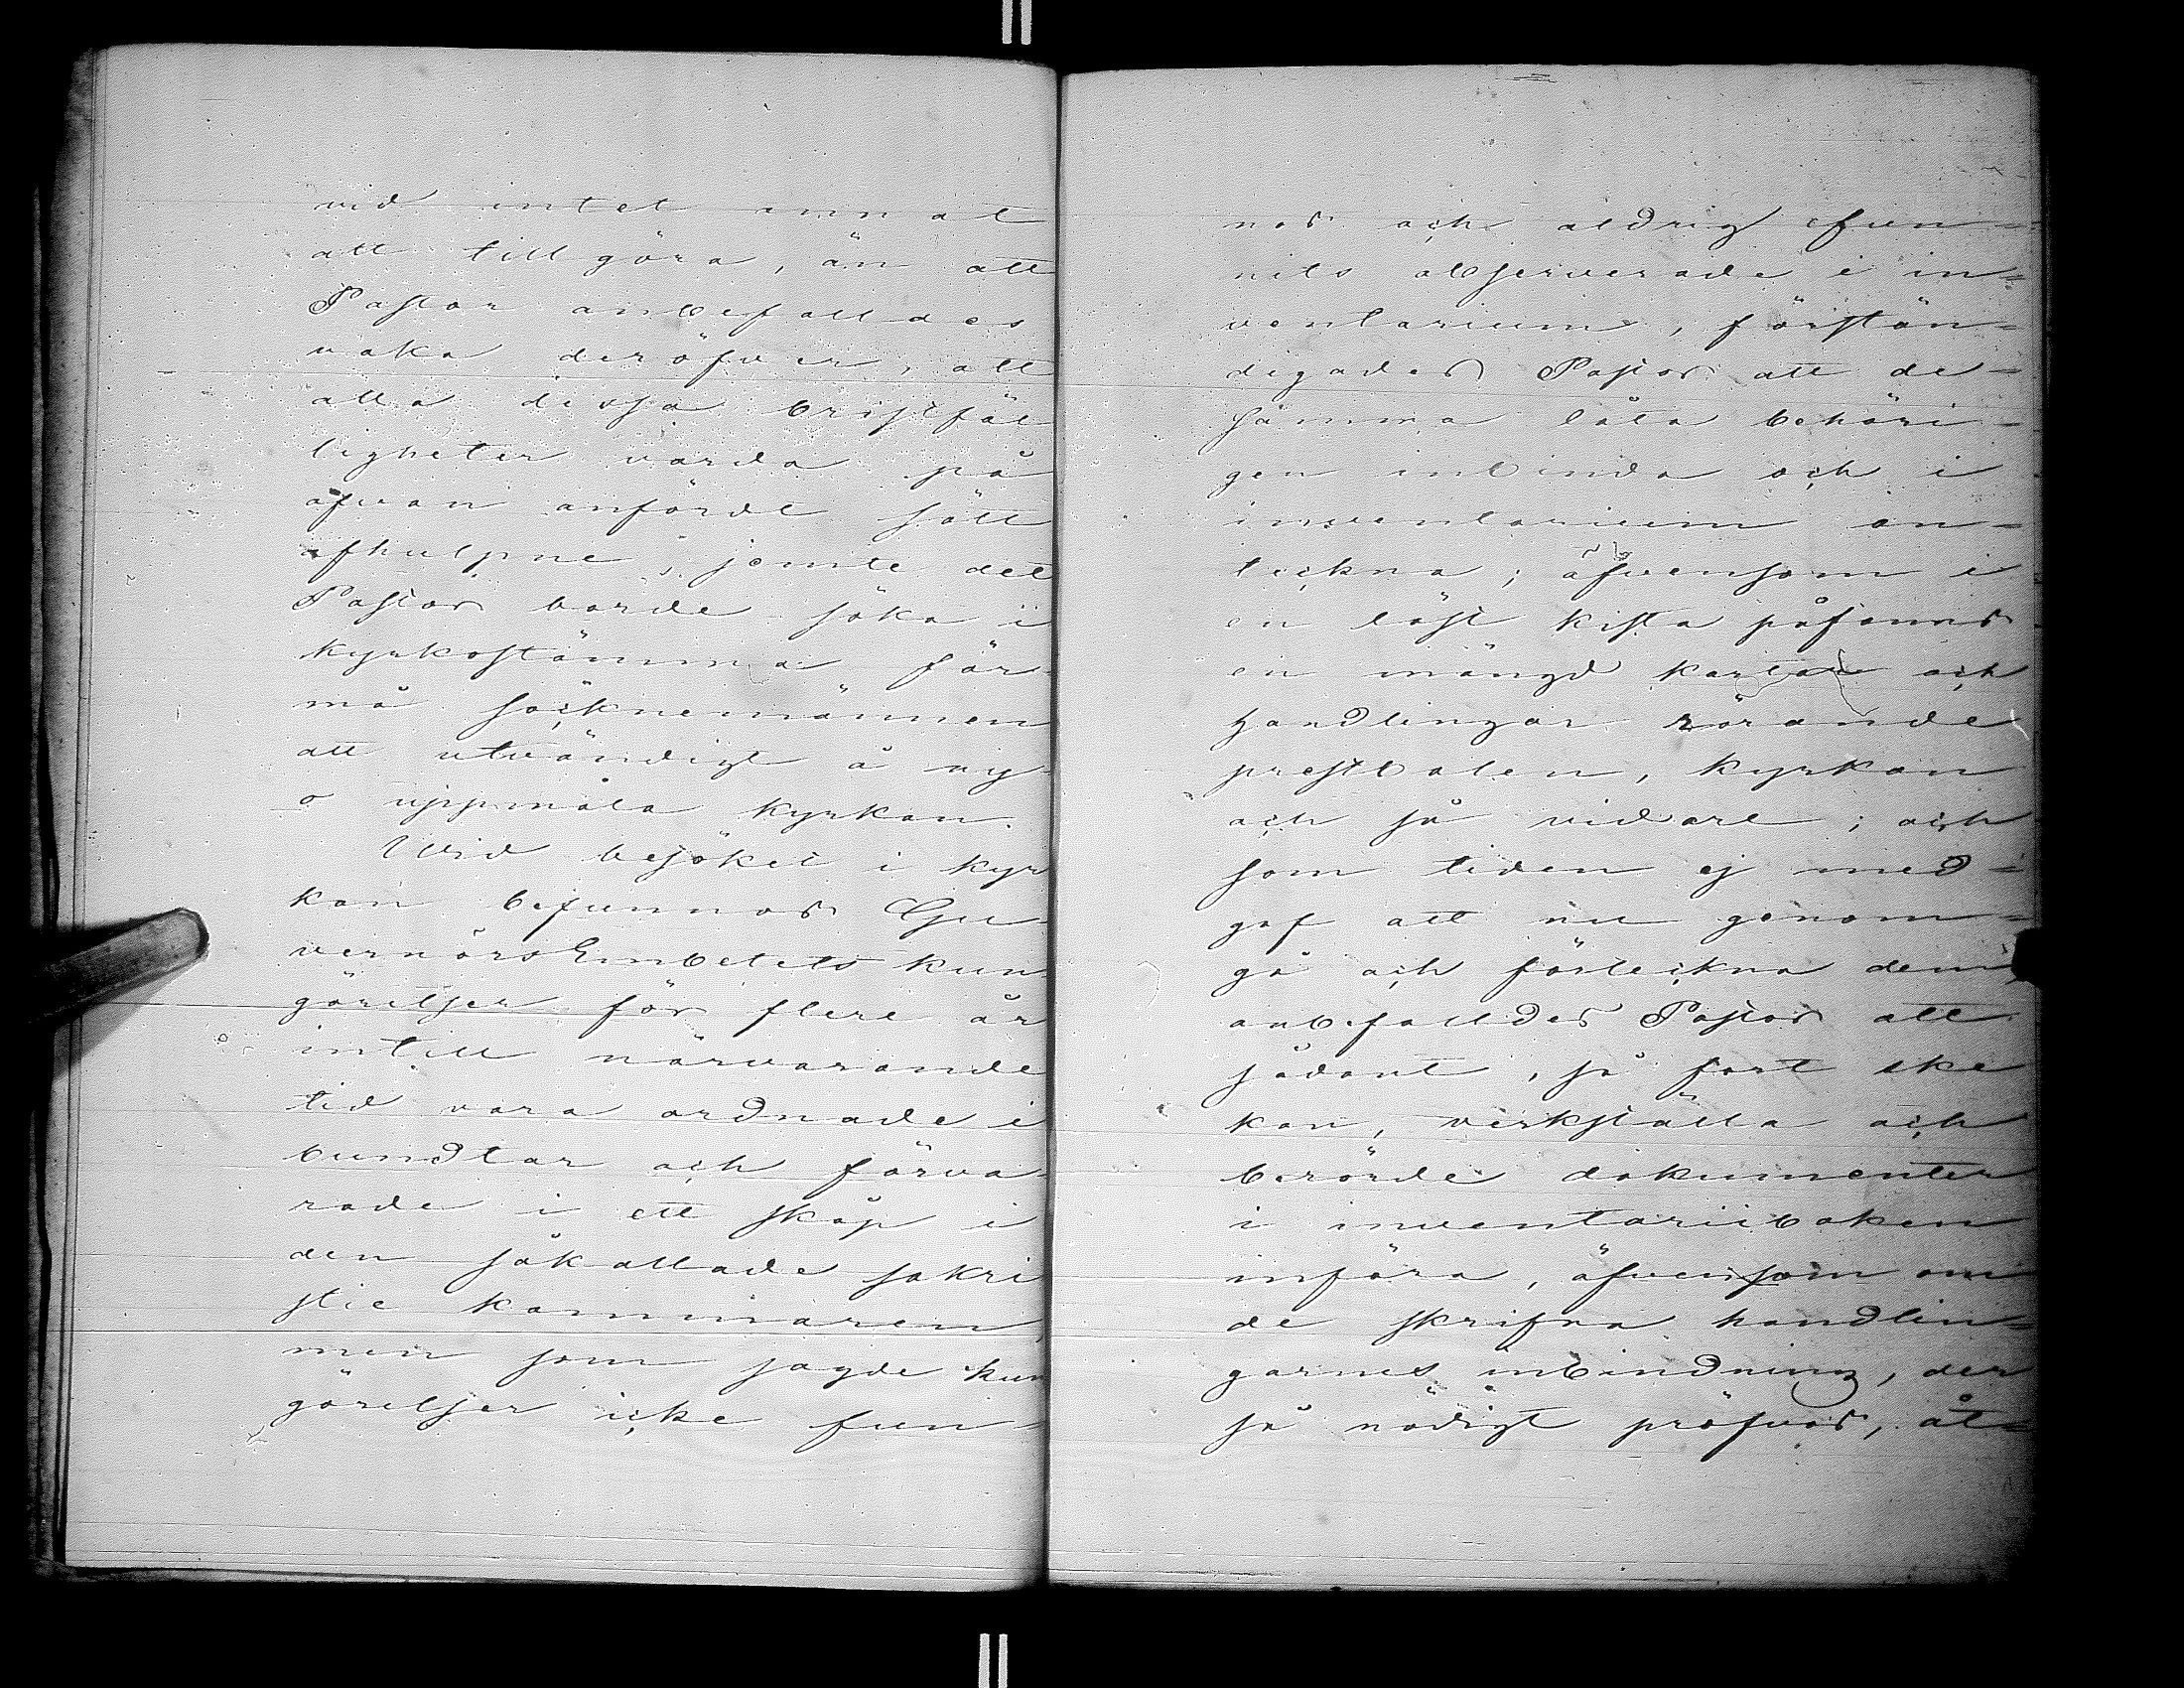 vid intet annat
att tillgöra, än att
Pastor anbefalldes
vaka deröfver, att
alla dessa bristfäl
ligheter varda på
ofvan anfördt sätt
afhulpne, jemte det
Pastor borde söka i
kyrkostämma för-
må socknemännen
att utvändigt å ny
o uppmåla kyrkan.
Wid besöket i kyr
kan befunnos Gu
vernörsEmbetets kun
görelser för flere år
intill närvarande
tid vara ordnade i
bundtar och förva-
rade i ett skåp i
den såkallade sakri
stie kammaren,
men som sagde kun
görelser icke fun
nos och aldrig fun=
nits observerade i in=
ventarium, förstän=
digades Pastor att de=
samma låta behöri=
gen inbinda och i
inventarium an=
teckna; äfvensom i
en låst kista påfanns
en mängd kartor och
handlingar rörande
prestbolen, kyrkan
och så vidare; och
som tiden ej med=
gaf att nu genom=
gå och förteckna dem,
anbefalldes Pastor att
sådant, så fort ske
kan, verkställa och
berörde dokumenter
i inventariiboken
införa, äfvensom om
de skrifna handlin=
garnes inbindning, der
så nödigt pröfvas, åt=